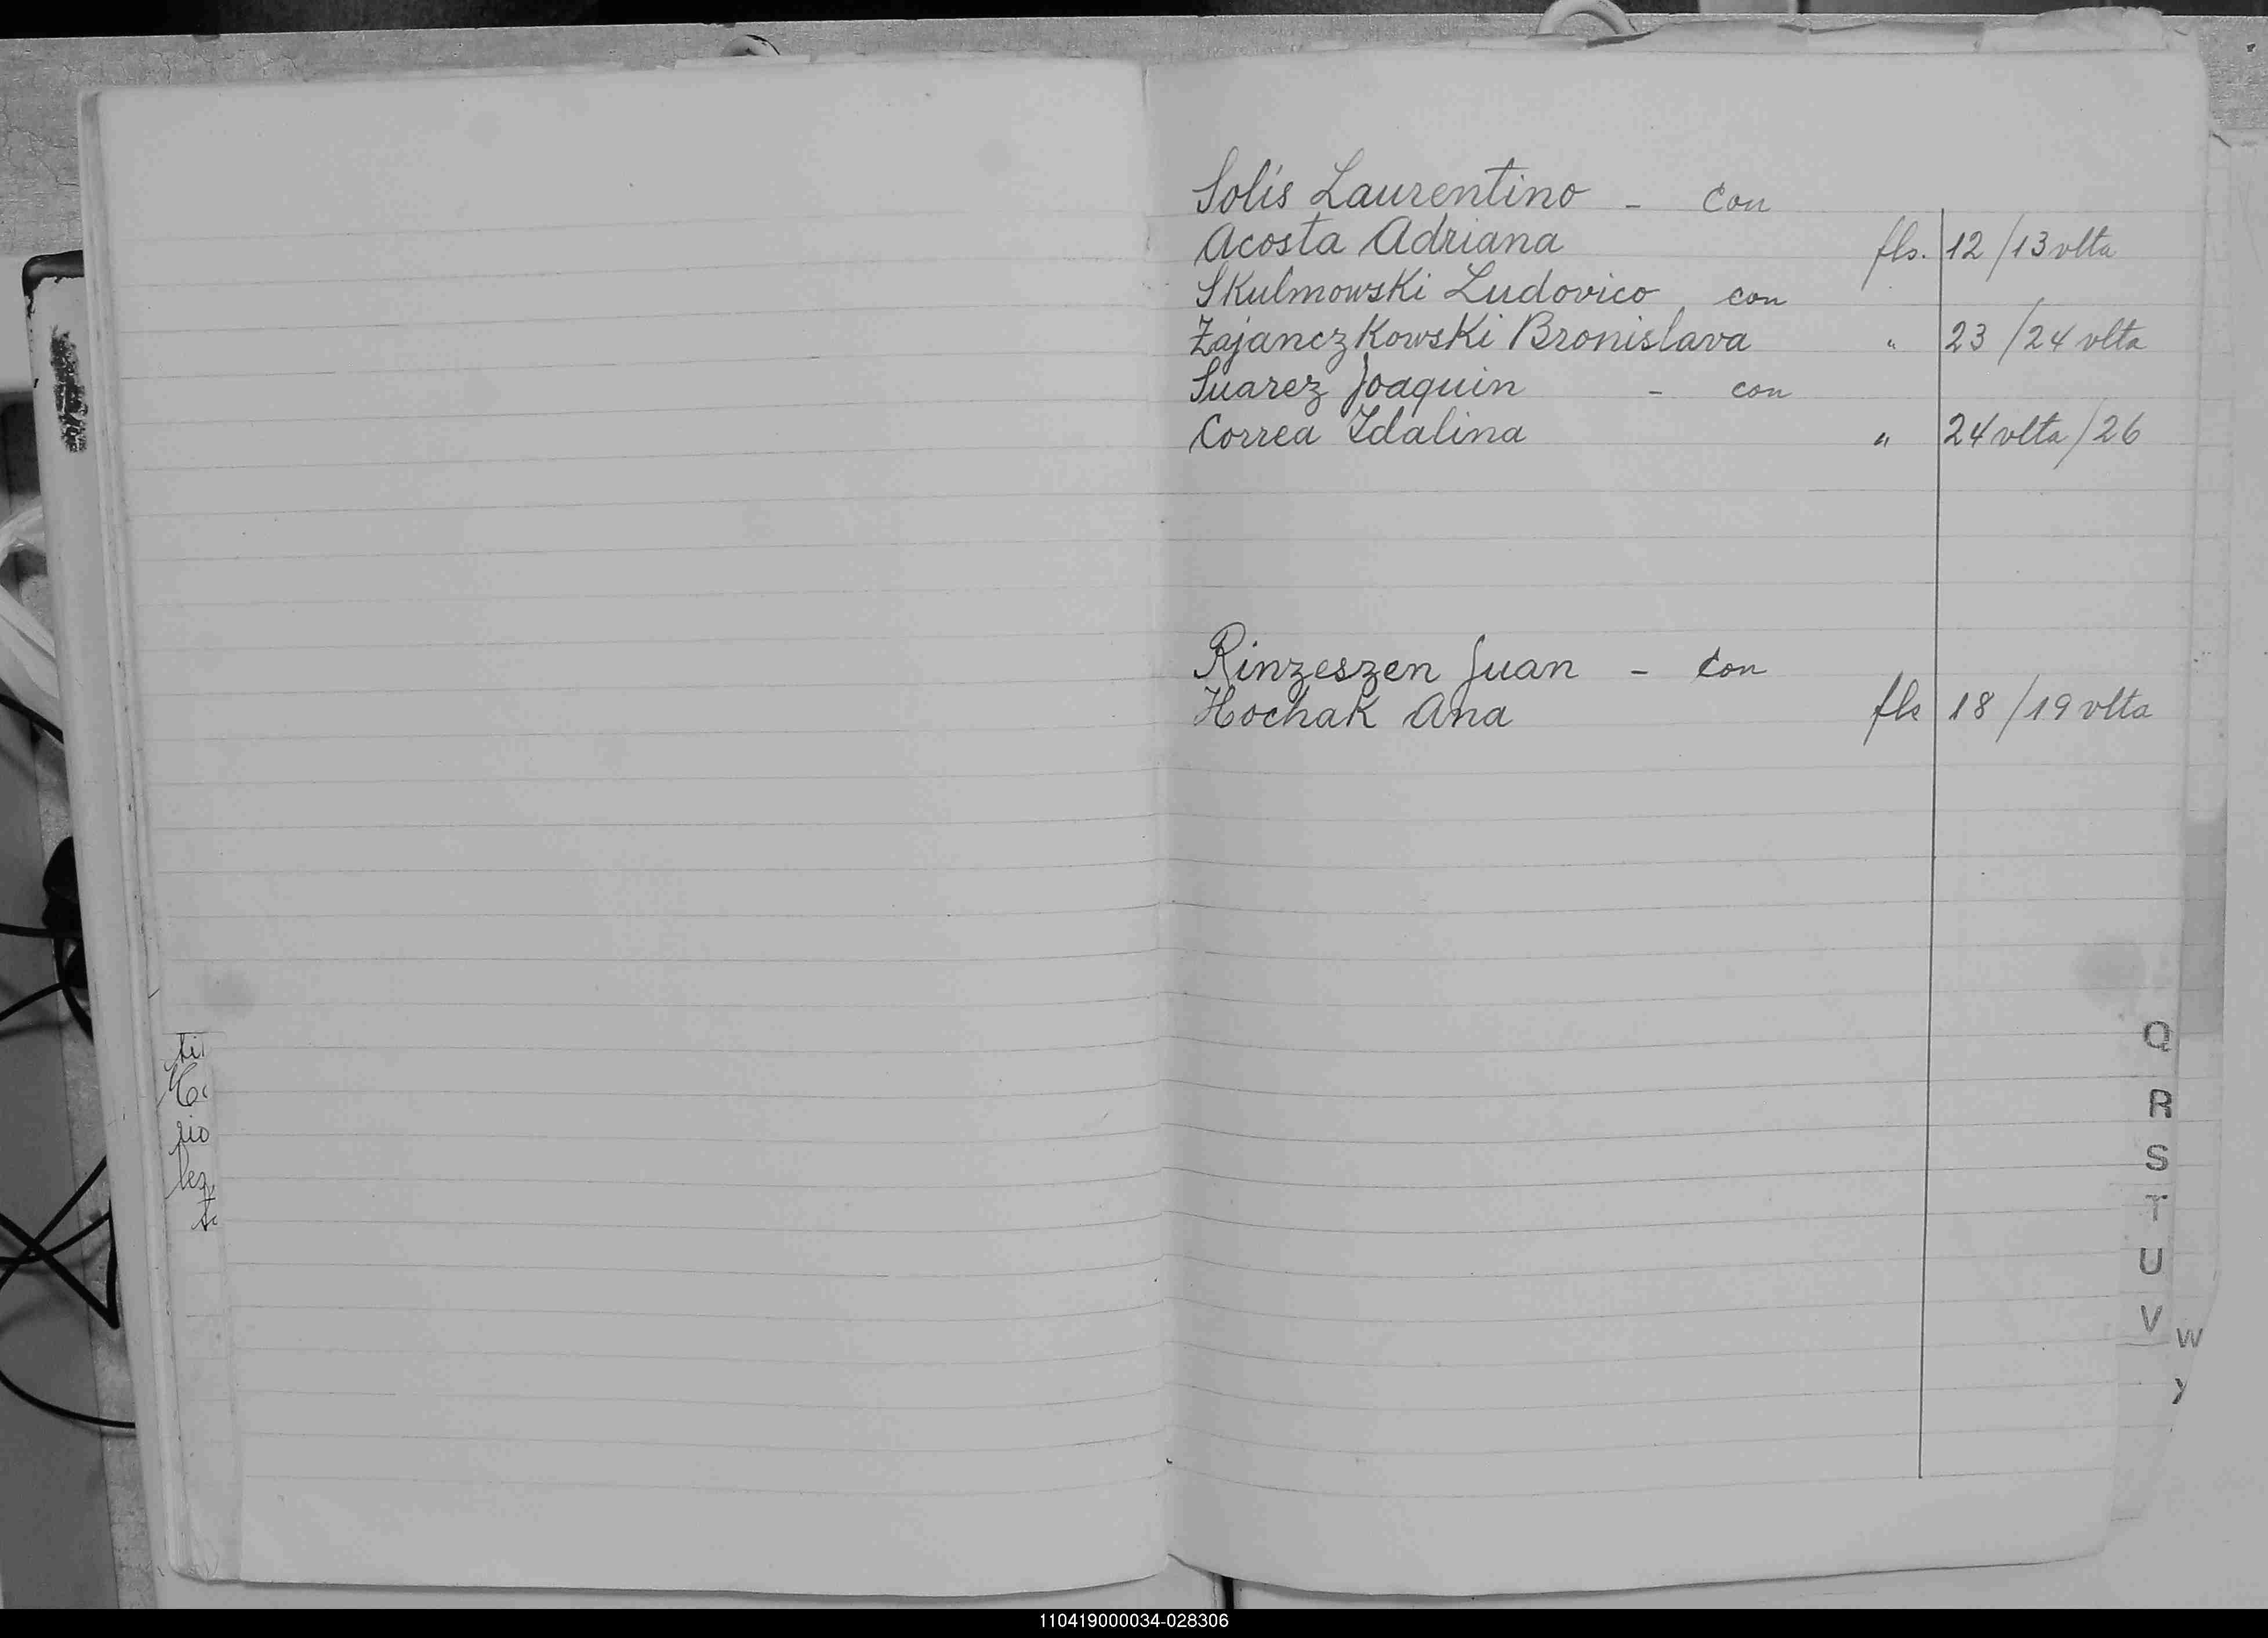 Solís Laurentino - Con
Acosta Adriana fls. 12/13 vlta
Skulmowski Ludovico con
Zajanczkowski Bronislava " 23/24 vlta
Suarez Joaquin - con
Correa Idalina " 24 vlta/26
Rinzeszen Juan - Con
Hochak Ana fls 18/19 vlta
Q
R
S
T
U
V
W
rio
110419000034-028306